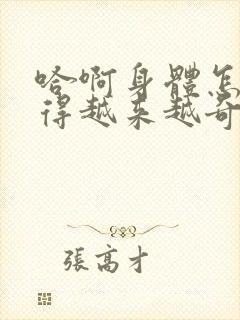 哈啊身體怎
得越来越奇
張高才